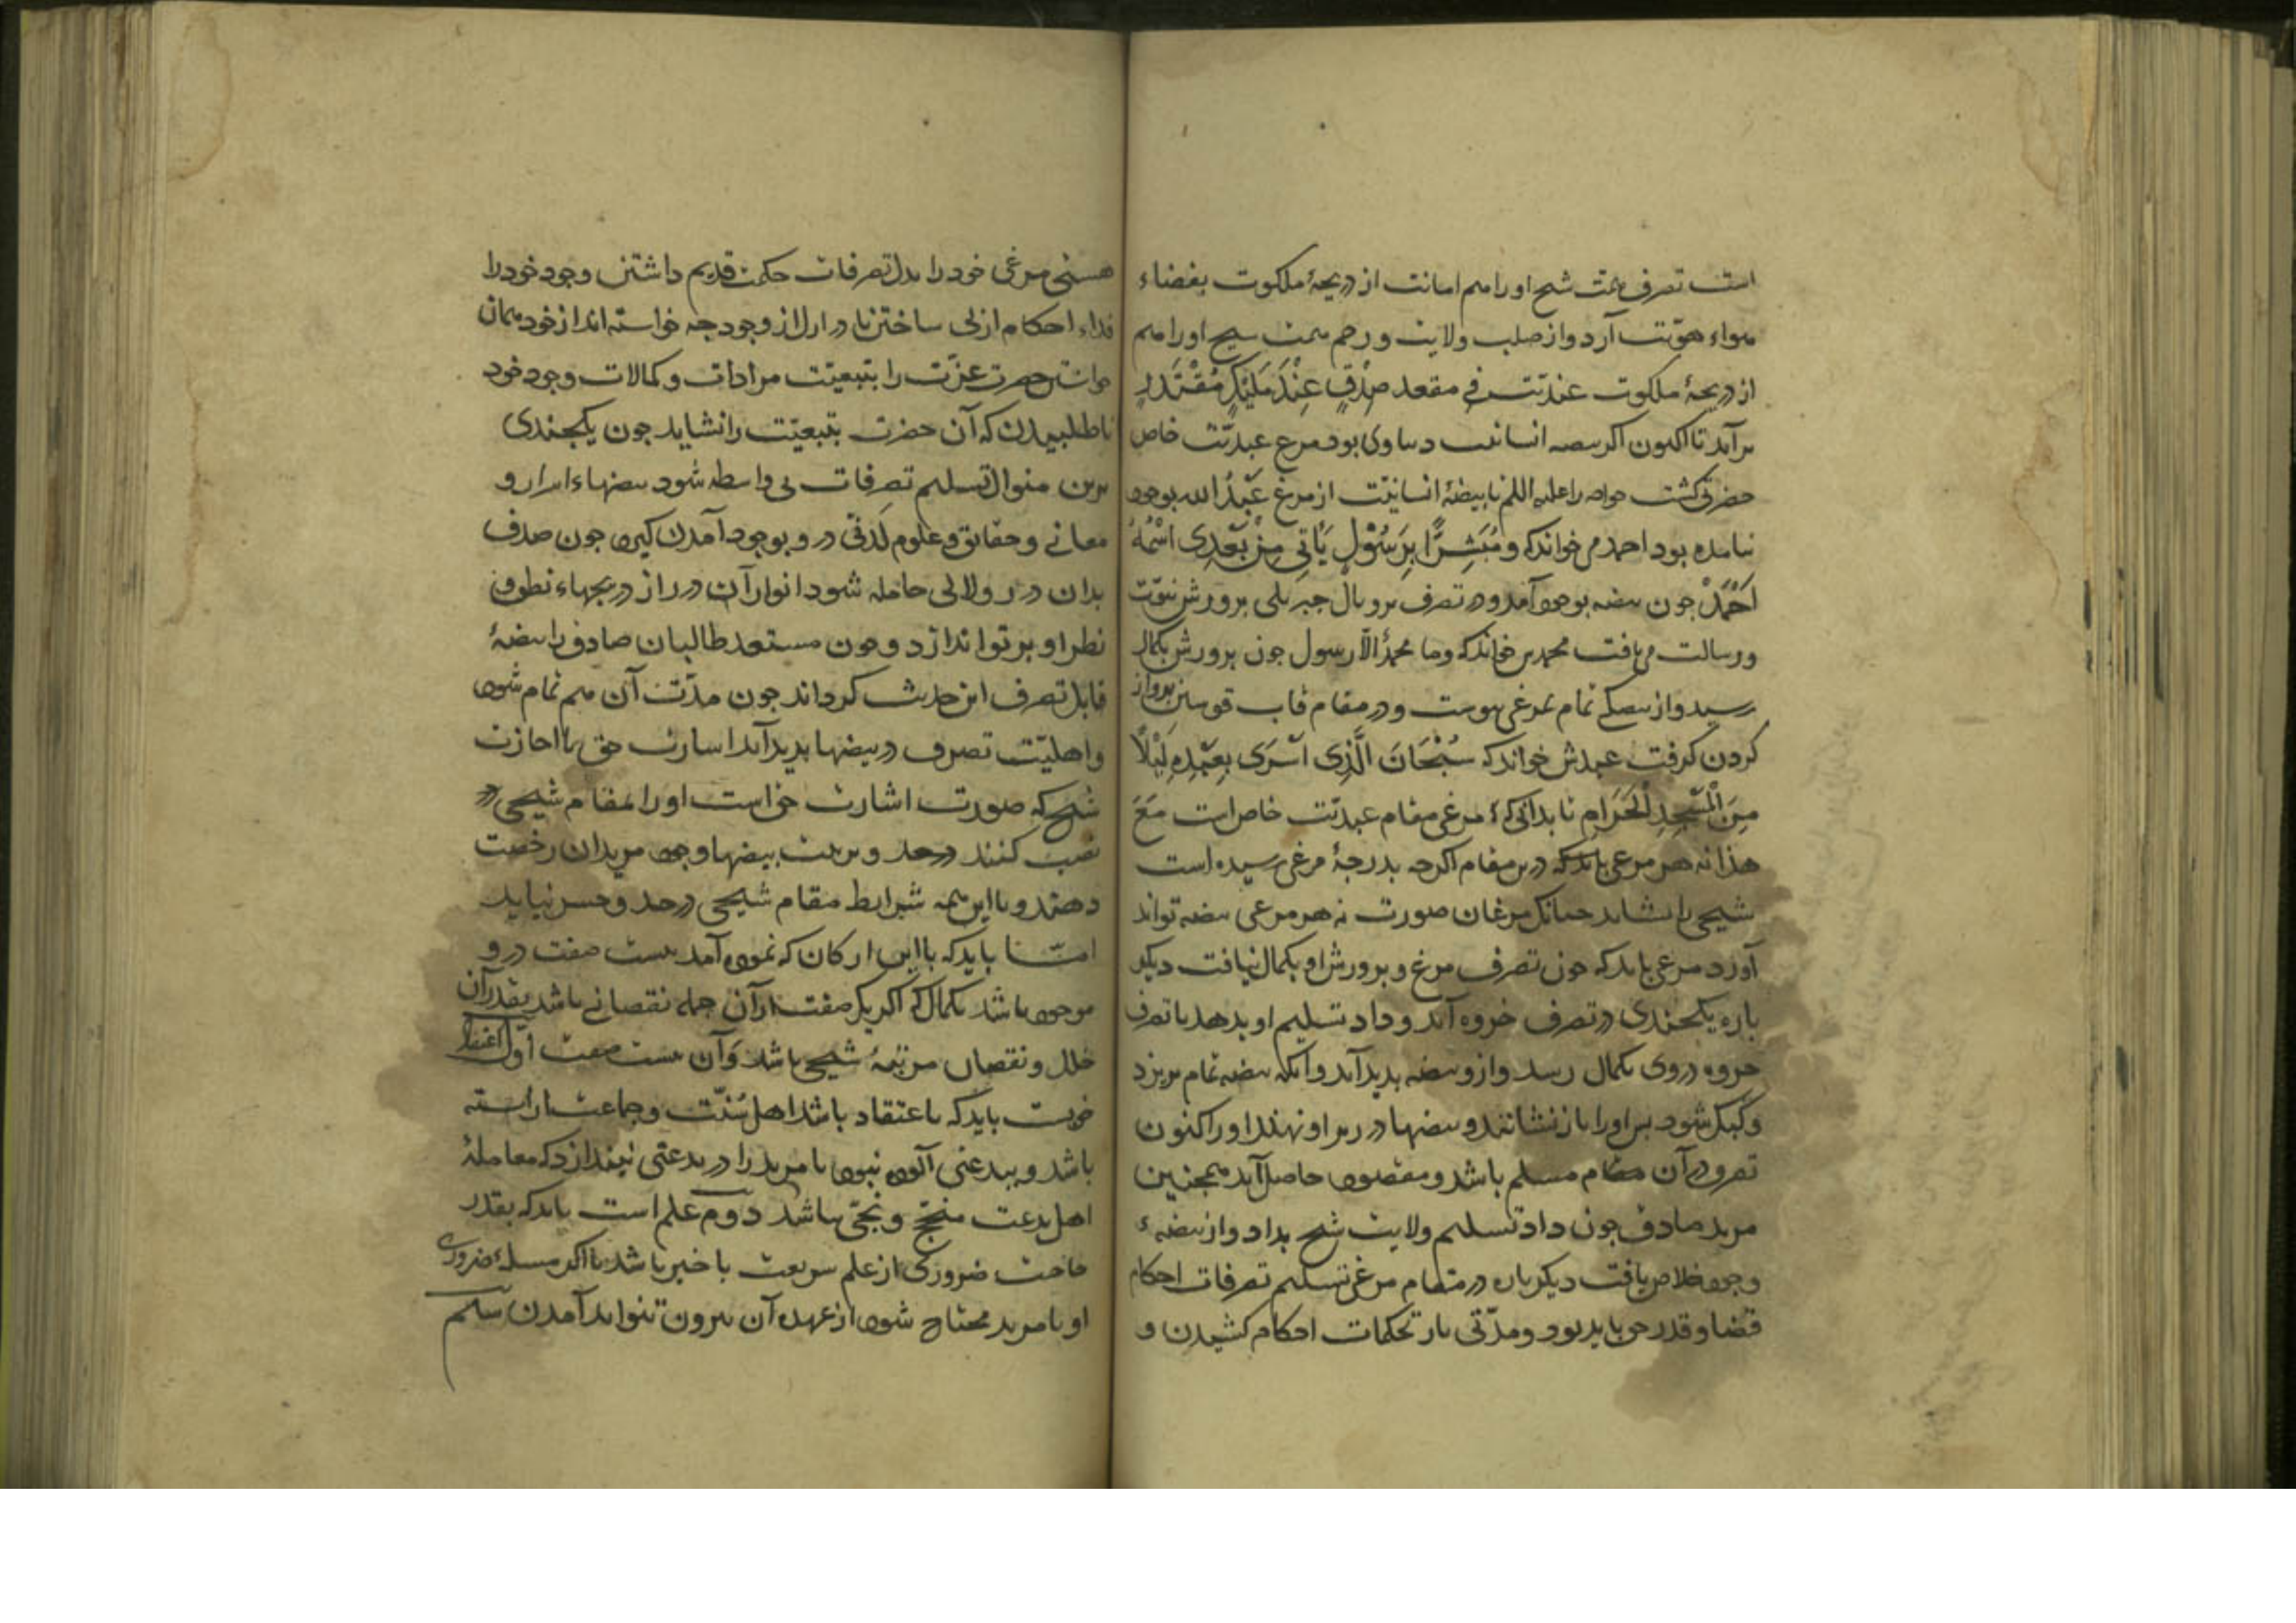 است تصرف همت شیخ او را هم امانت از دریچهٔ ملکوت بفضاء
هواء هویت آرد و از صلب ولایت و رحم همت شیخ او را هم
از دریچهٔ ملکوت عندیت فی مقعد صِدْقٍ عِنْدَ مَلِیْکٍ مُقْتَدِرٍ
برآمد تا اکنون اکر بیضه انسانیت دنیاوی بود مرغ عبدیّت خاص
حضرتی کشت خواجه را علیه السلام تا بیضهٔ انسانیّت از مرغ عَبْدُ الله بوجود
نیامده بود احمد می خواند که و مُبَشِّرًا بِرَسُوْلٍ یَاْتِی مِنْ بَعْدِی اسْمُهُ
اَحْمَدْ چون بیضه بوجود آمد و در تصرف پر و بال جبریلی پرورش نبوّت
و رسالت می یافت محمدش خواند که وما محمدٌ الّا رسول چون پرورش بکمال
رسید و از بیضکی تمام بمرغی پیوست و در مقام قاب قوسین پرواز
کردن کرفت عبدش خواند که سُبْحَانَ الَّذِی اَسْرَی بِعَبْدِهِ لَیْلًا
مِنَ الْمَسْجِدِ الْحَرَامِ تا بدانی که مرغی مقام عبدیّت خاص است مَعَ
هذا نه هر مرغی باید که درین مقام اکرچه بدرجهٔ مرغی رسیده است
شیخی را شاید چنانک مرغان صورت نه هر مرغی بیضه تواند
آورد مرغی باید که چون تصرف مرغ و پرورش او بکمال یافت دیکر
باره یکچندی در تصرف خروه آید و داد تسلیم او بدهد تا تصرف
خروه در وی بکمال رسد و از و بیضه بدید آید و آنکه بیضه تمام بریزد
و کرک شود پس او را باز نشانند و بیضها در زیر او نهند او را کنون
تصرف در آن مقام مسلم باشد و مقصود حاصل آید همچنین
مرید صادق چون داد تسلیم ولایت شیخ بداد و از بیضهٔ
وجود خلاص یافت دیکر باره در مقام مرغی تسلیم تصرفات احکام
قضا و قدر می باید بود و مدّتی بار تحکمات احکام کشیدن و
هستی مرغی خود را بدل تصرفات حکمت قدیم داشتن وجود خود را
فداء احکام ازلی ساختن تا در ازل از وجود چه خواسته اند از خود همان
خواستن حضرت عزّت را بتبعیّت مرادات و کمالات وجود خود
ناطلبیدن که آن حضرت بتبعیّت را نشاید چون یکچندی
برین منوال تسلیم تصرفات بی واسطه شود بیضهاء اسرار و
معانی و حقایق و علوم لَدنّی درو بوجود آمدن کیرد چون صدف
بدان درر و لالی حامله شود انوار آن درر از دریچهاء نطق و
نظر او پرتو اندازد و چون مستعد طالبان صادق را بیضهٔ
قابل تصرف این حدیث کرداند چون مدّت آن هم تمام شود
و اهلیّت تصرف در بیضها بدید آید اشارت حق با اجازت
شیخ که صورت اشارت حق است او را بمقام شیخی در
نصب کنند و بتربیت بیضهاء وجود مریدان رخصت
دهند و با این همه شرایط مقام شیخی در حد و حصر نیاید
امّا باید که با این ارکان که نموده آمد بیست صفت در و
موجود باشد بکمال که اکر یک صفت از آن جمله نقصانی باشد بقدر آن
خلل و نقصان مرتبهٔ شیخی باشد و آن بیست صفت اوّل اعتقاد
خوبست باید که با اعتقاد باشد اهل سُنّت و جماعت آراسته
باشد و ببدعتی آلوده نبود تا مرید را در بدعتی نیندازد که معاملهٔ
اهل بدعت منتج و نجی نباشد دوم علم است باید که بقدر
حاجت ضروری از علم شریعت با خبر باشد تا اکر مسئلهٔ ضروری
او یا مرید محتاج شود از عهده آن بیرون تواند آمدن سیم